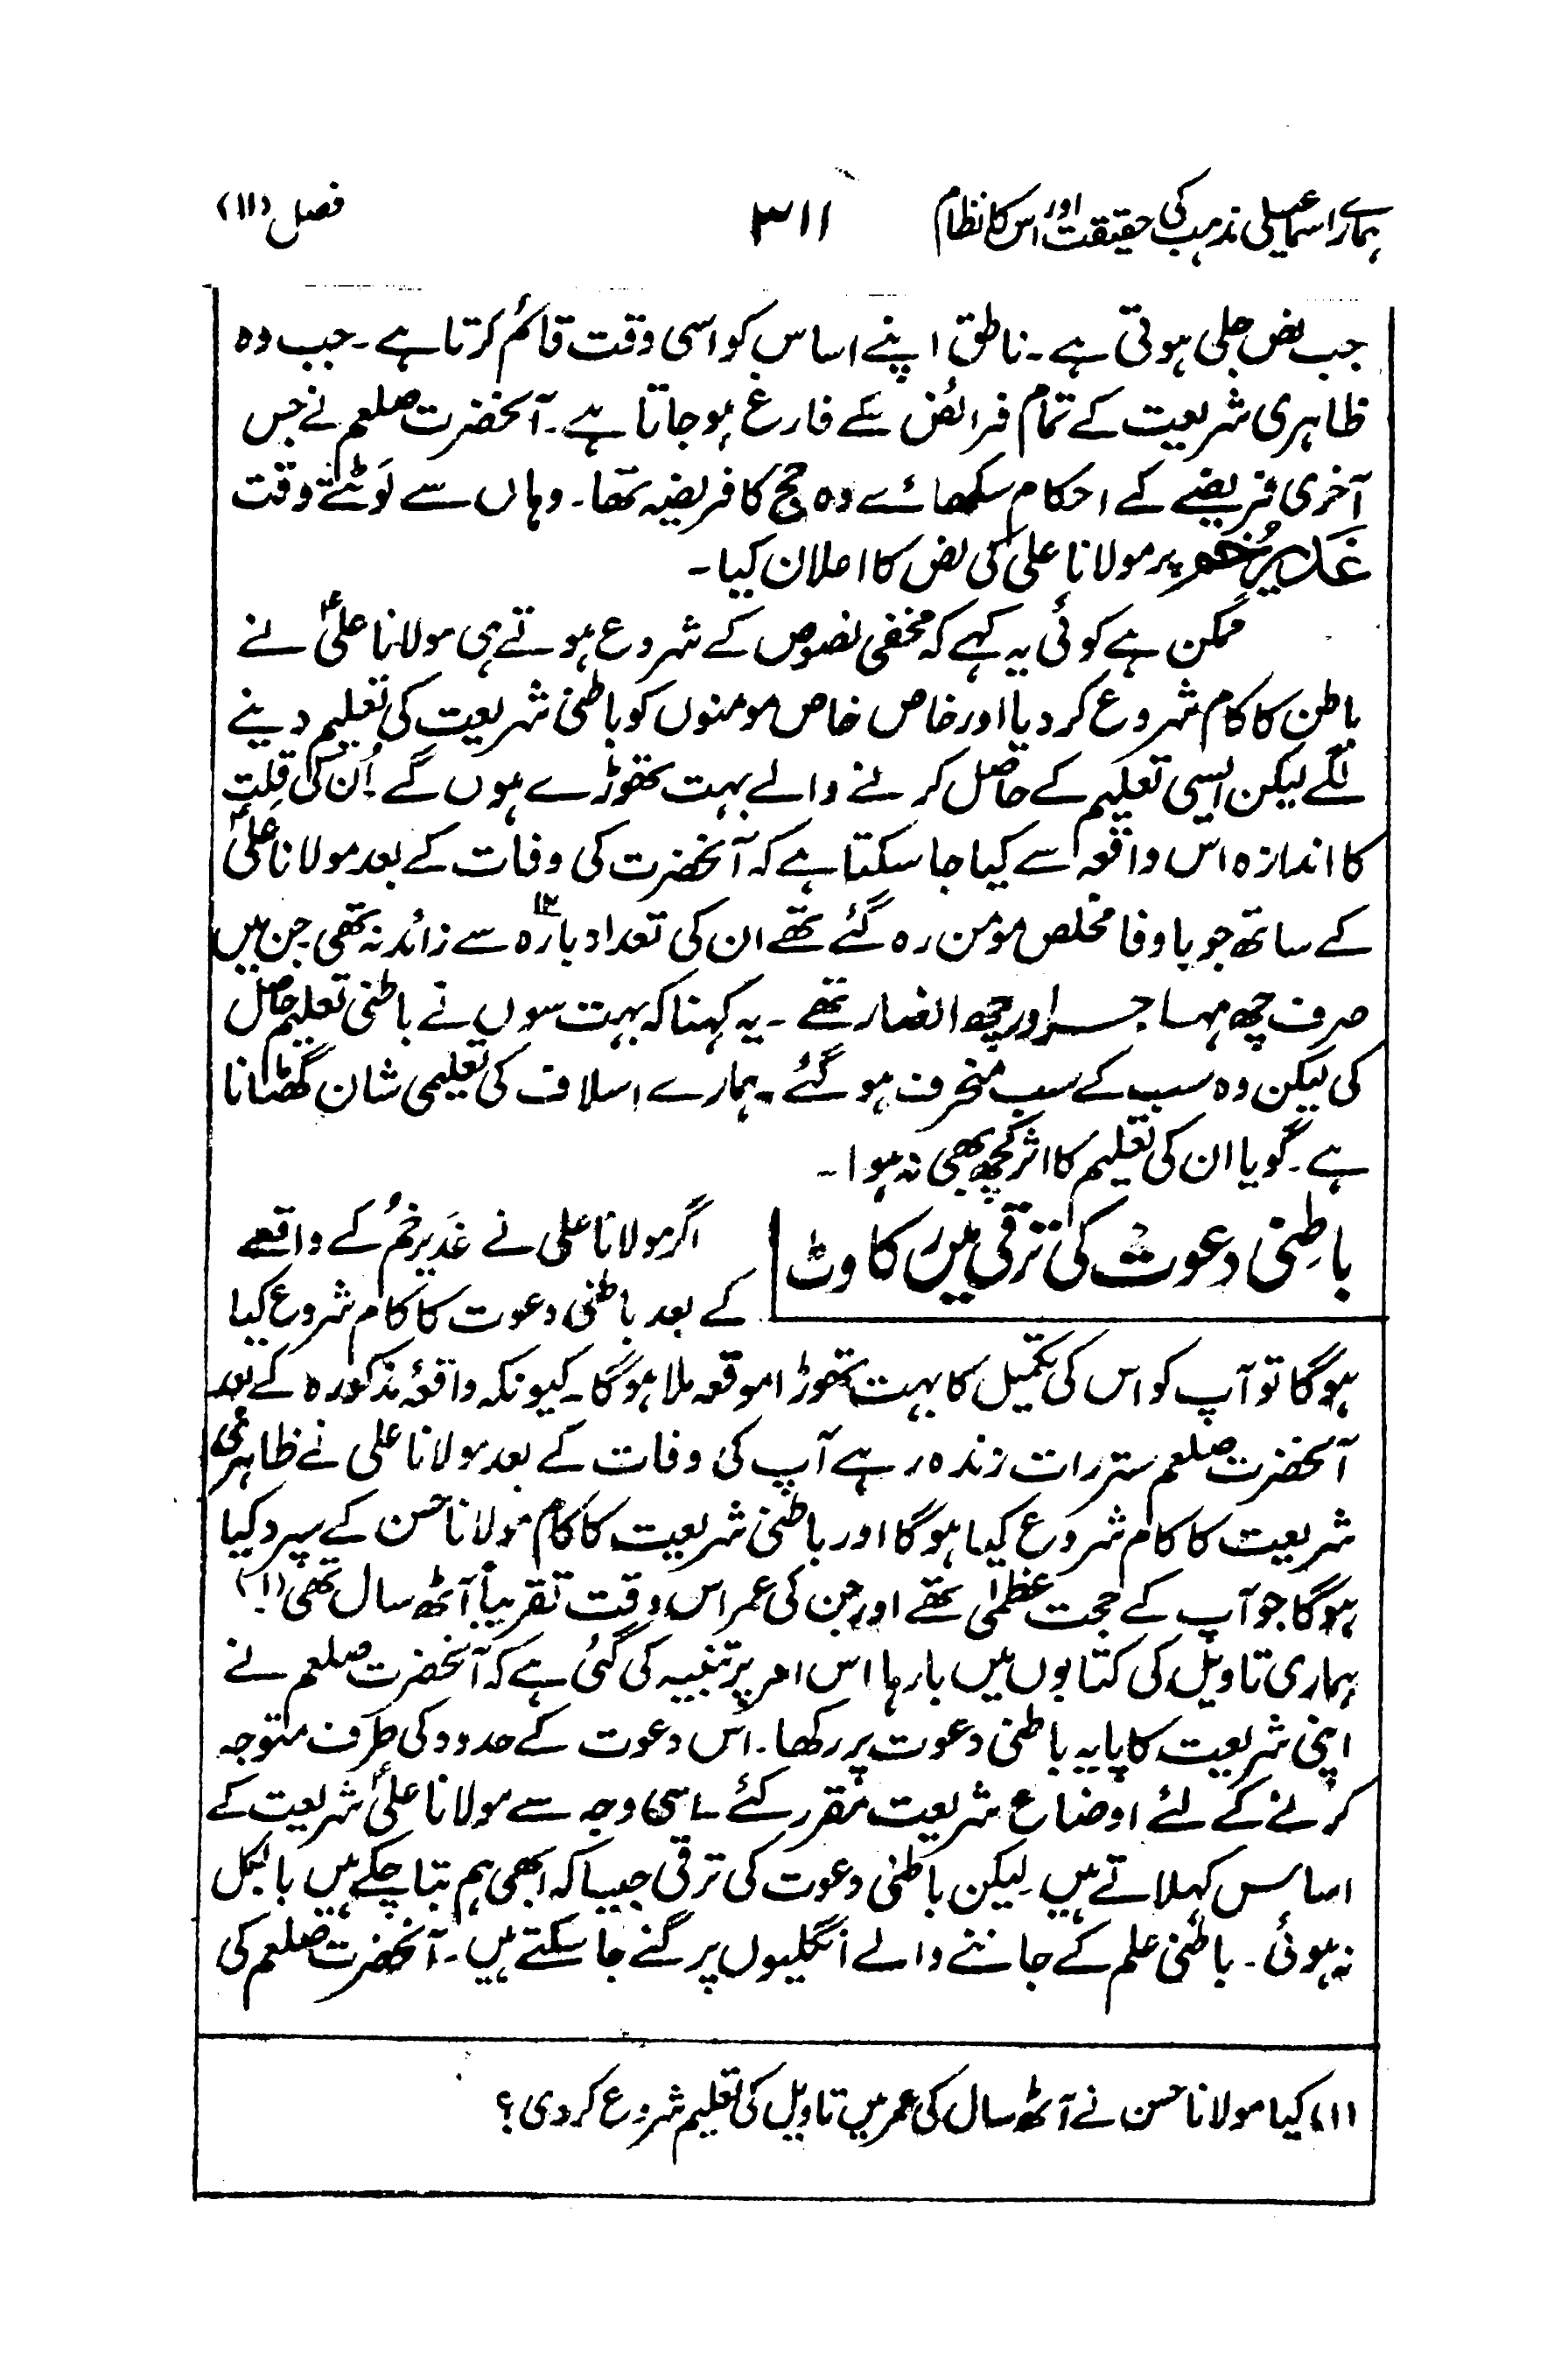 ہمارے اسماعیلی مذہب کی حقیقت اور اس کا نظام
۳۱۱
فصل (۱۱)
جب نص جلی ہوتی ہے۔ ناطق اپنے اساس کو اسی وقت قائم کرتا ہے۔ جب وہ
ظاہری شریعت کے تمام فرائض سے فارغ ہو جاتا ہے۔ آنحضرت صلعم نے جس
آخری فریضے کے احکام سکھائے وہ حج کا فریضہ تھا۔ وہاں سے لَوٹتے وقت
غَدیرِ خُم پر مولانا علی کی نص کا اعلان کیا۔
ممکن ہے کوئی یہ کہے کہ مخفی نصوص کے شروع ہوتے ہی مولانا علیؑ نے
باطن کا کام شروع کر دیا اور خاص خاص مومنوں کو باطنی شریعت کی تعلیم دینے
لگے لیکن ایسی تعلیم کے حاصل کرنے والے بہت تھوڑے ہوں گے۔ اُن کی قِلت
کا اندازہ اس واقعہ سے کیا جا سکتا ہے کہ آنحضرت کی وفات کے بعد مولانا علیؑ
کے ساتھ جو با وفا مخلص مومن رہ گئے تھے ان کی تعداد بارہ ۱۲ سے زائد نہ تھی جن میں
صرف چھ مہاجر اور چھ انصار تھے ۔ یہ کہنا کہ بہت سوں نے باطنی تعلیم حاصل
کی لیکن وہ سب کے سب منحرف ہو گئے۔ ہمارے اسلاف کی تعلیمی شان گھٹانا
ہے۔ گویا ان کی تعلیم کا اثر کچھ بھی نہ ہوا۔
باطِنی دعوت کی ترقی میں رکاوٹ
اگر مولانا علی نے غَدیر خُم کے واقعے
کے بعد باطنی دعوت کا کام شروع کیا
ہوگا تو آپ کو اس کی تکمیل کا بہت تھوڑا موقعہ ملا ہوگا۔ کیونکہ واقعۂ مذکورہ کے بعد
آنحضرت صلعم ستر رات زندہ رہے آپ کی وفات کے بعد مولانا علی نے ظاہری
شریعت کا کام شروع کیا ہوگا اور باطنی شریعت کا کام مولانا حسن کے سپرد کیا
ہوگا جو آپ کے حجت عظمیٰ تھے اور جن کی عمر اس وقت تقریباً آٹھ سال تھی (۱)
ہماری تاویل کی کتابوں میں بارہا اس امر پر تنبیہ کی گئی ہے کہ آنحضرت صلعم نے
اپنی شریعت کا پایہ باطنی دعوت پر رکھا۔ اس دعوت کے حدود کی طرف متوجہ
کرنے کے لئے اوضاع شریعت مقرر کئے ۔ اسی وجہ سے مولانا علیؑ شریعت کے
اساس کہلاتے ہیں۔ لیکن باطنی دعوت کی ترقی جیسا کہ ابھی ہم بتا چکے ہیں بالکل
نہ ہوئی۔ باطنی علم کے جاننے والے انگلیوں پر گنے جا سکتے ہیں۔ آنحضرت صلعم کی
(۱) کیا مولانا حسن نے آٹھ سال کی عمر میں تاویل کی تعلیم شروع کر دی؟